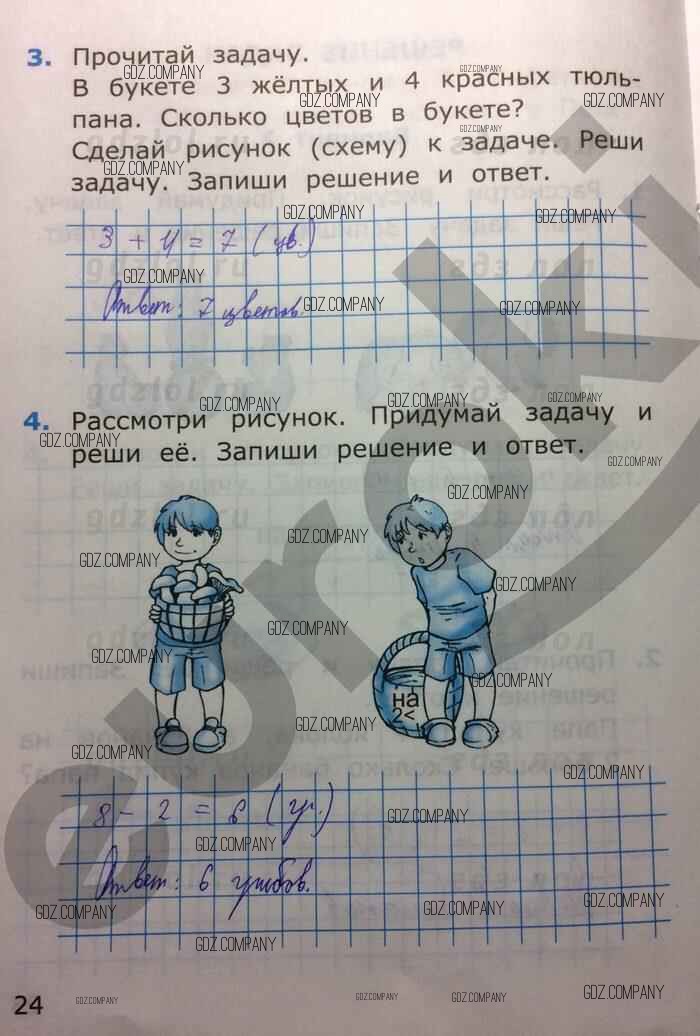 3. Прочитай задачу.
В букете 3 жёлтых и 4 красных тюль-
пана. Сколько цветов в букете?
Сделай рисунок (схему) к задаче. Реши
задачу. Запиши решение и ответ.
3 + 4 = 7 (цв.)
Ответ: 7 цветов.
4. Рассмотри рисунок. Придумай задачу и
реши её. Запиши решение и ответ.
на
2<
8 - 2 = 6 (гр.)
Ответ: 6 грибов.
24
GDZ.COMPANY
euroki